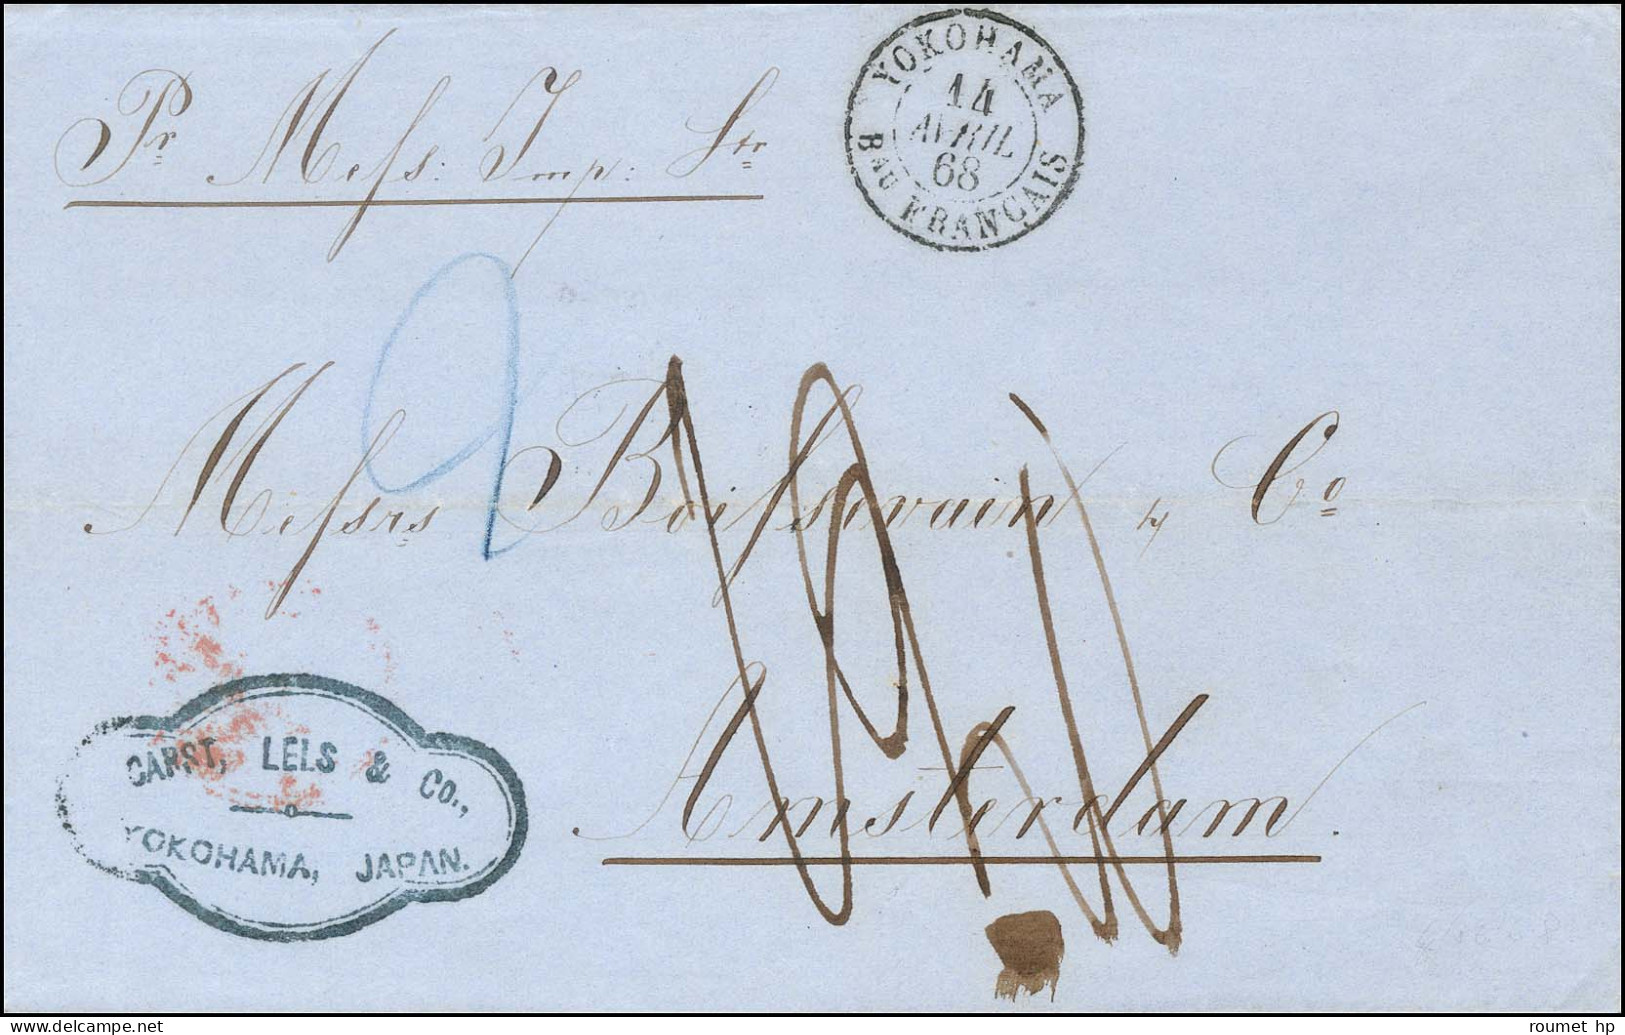 YOKOHAMA
14
AVRIL
68
Bau FRANCAIS
Pr Mess: Imp: Str
Messrs Boissevain & Co
Amsterdam.
CARST, LELS & Co.,
YOKOHAMA, JAPAN.
roumet hp